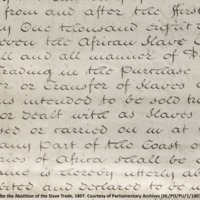 from and after the First
ay One thousand eight
even the African Slave
all and all manner of
Trading in the Purchase
r or Transfer of Slaves
ns intended to be sold tra
or dealt with as Slaves
sed or carried on in at
any part of the Coast o
ries of Africa shall be
ame is hereby utterly ab
bited and declared to be u
for the Abolition of the Slave Trade, 1807. Courtesy of Parliamentary Archives (HL/PO/PU/1/180